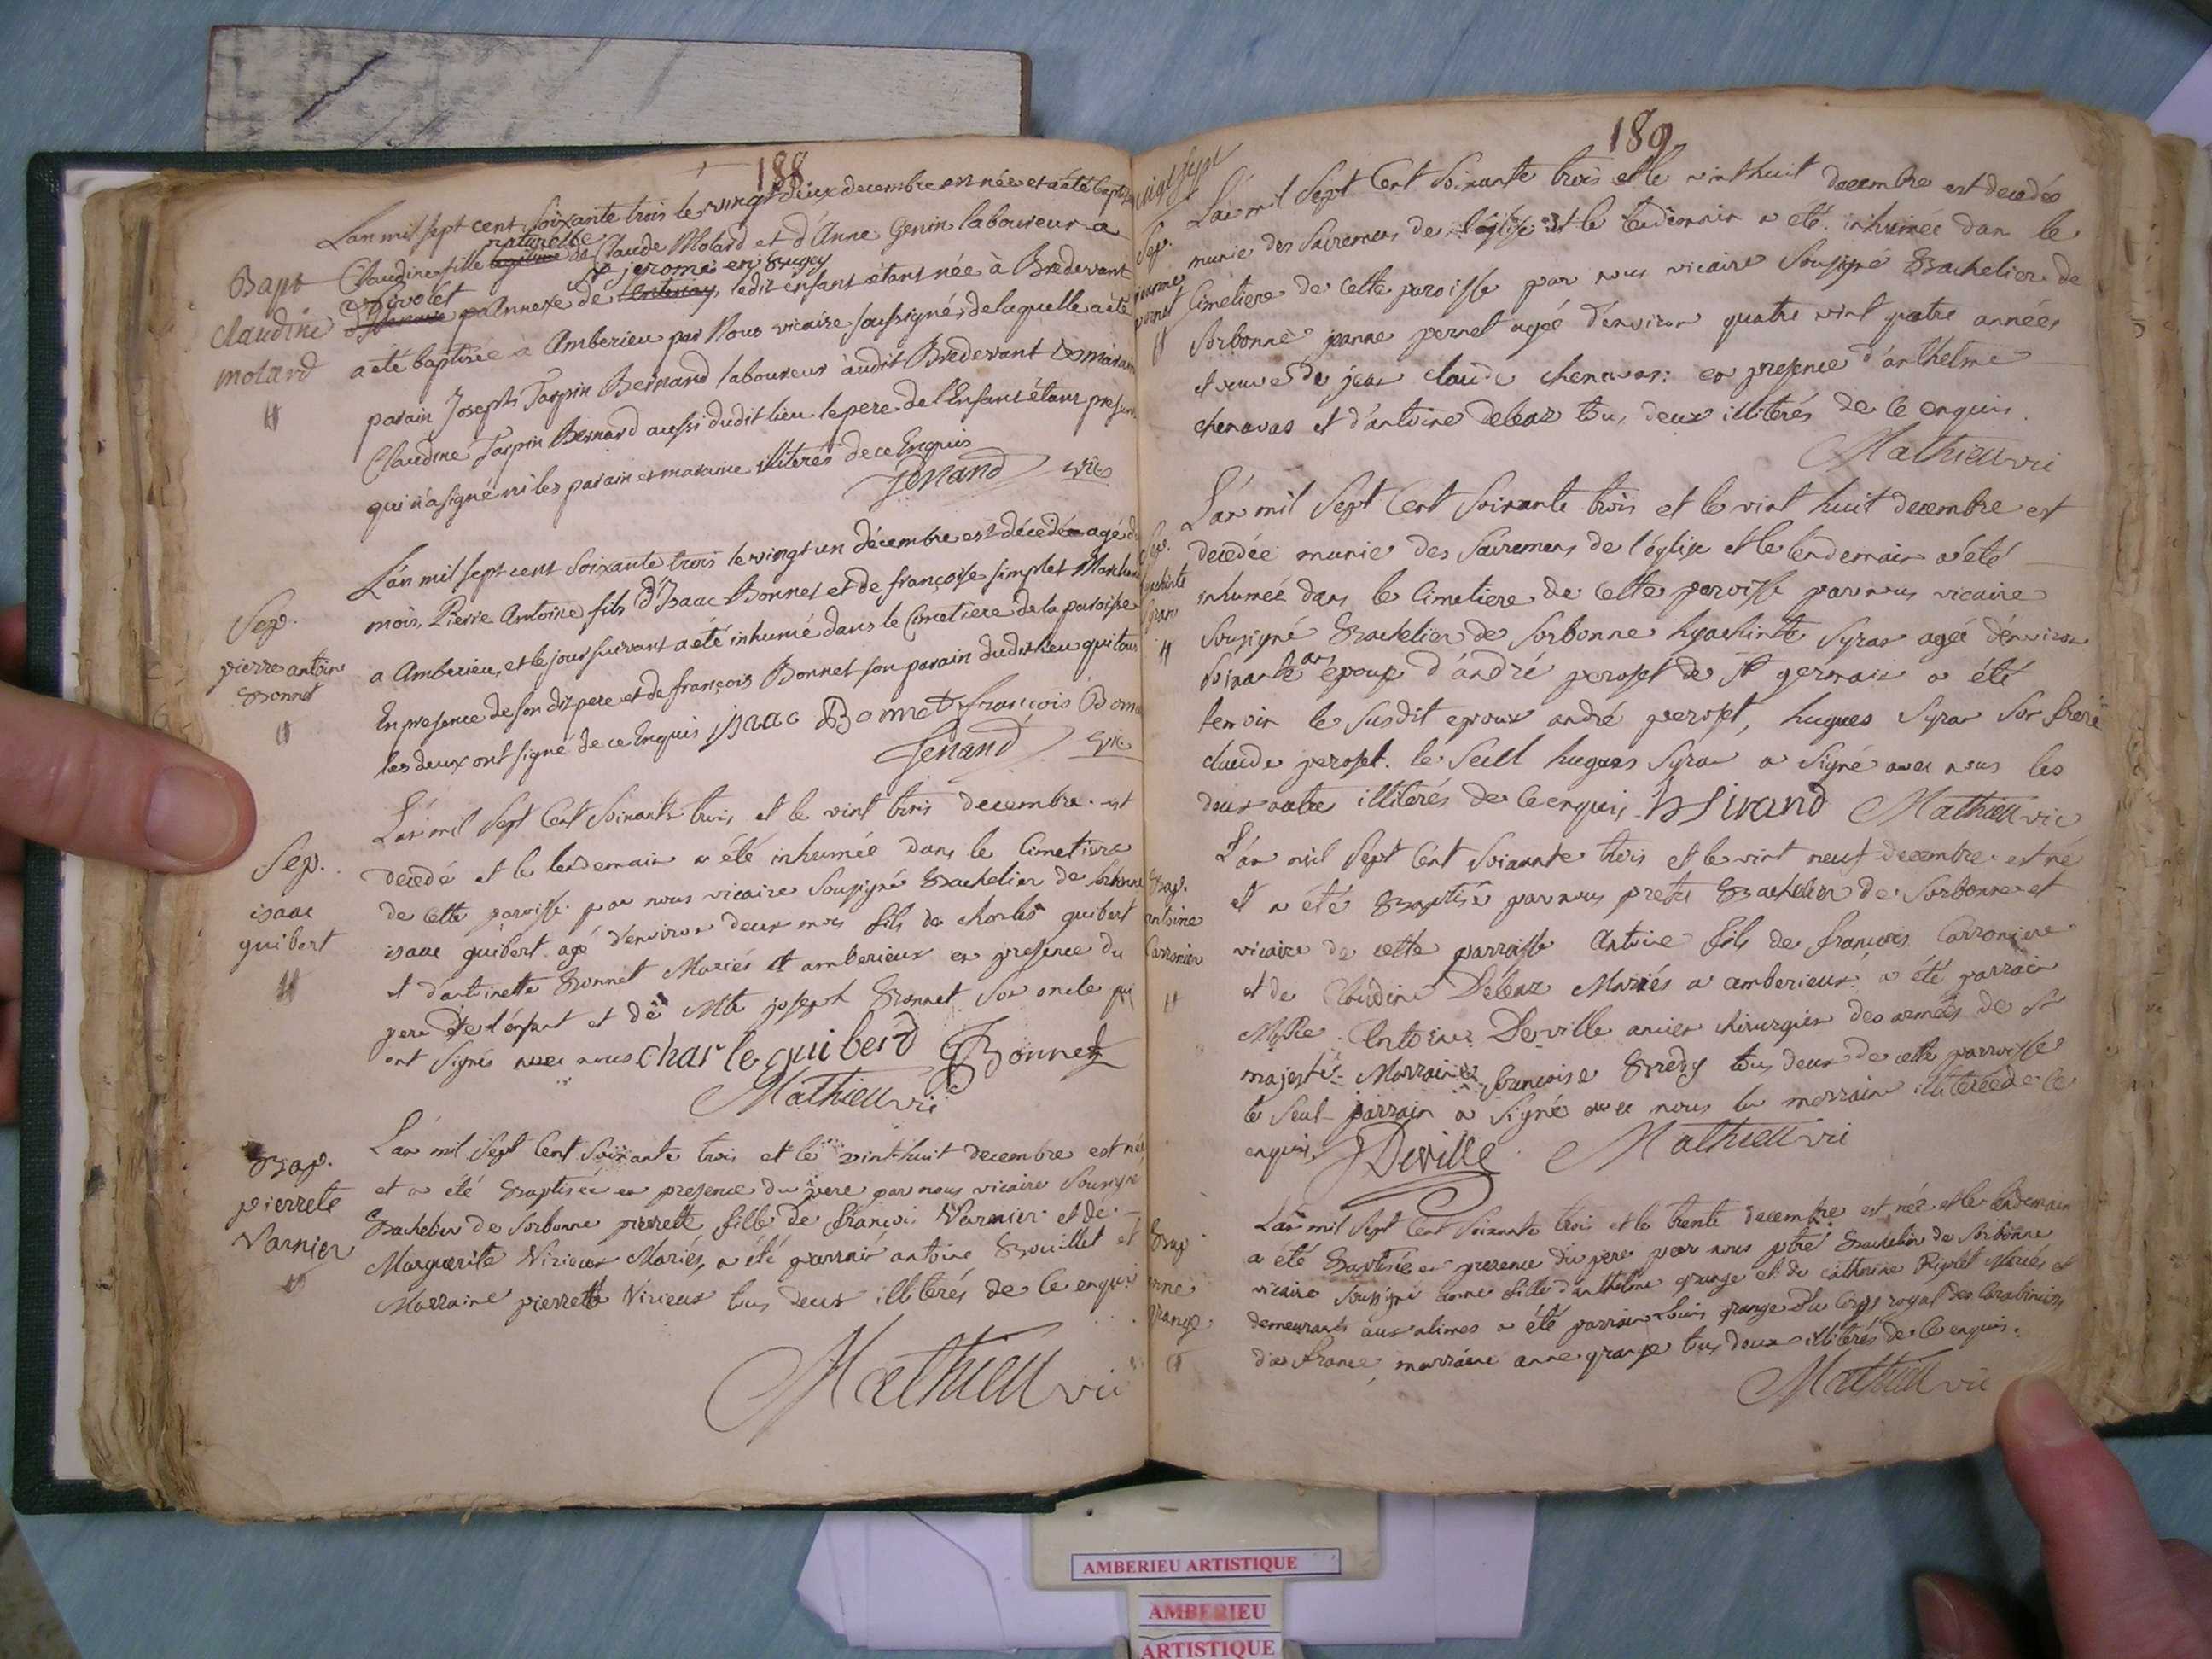 188
L'an mil sept cent soixante trois le vingt deux decembre est née et a été baptisée
Bapt
Claudine
molard
Claudine fille naturelle de Claude Molard et d'Anne Genin laboureur a
St jerome en Bugey
Vivolet annexe de ledit enfant étant née à Bredevant
a été baptisée à Amberieu par Nous vicaire soussigné, de laquelle a été
parain Joseph Tarpin Bernard laboureur audit Bredevant et maraine
Claudine Tarpin Bernard aussi dudit lieu le pere de l'Enfant étant present
qui n'a signé ni les parain et maraine illiterés de ce Enquis
Jenand vic
L'an mil sept cent soixante trois le vingt un décembre est décédé agé de
Sep.
pierre antoine
Bonnet
mois, Pierre Antoine fils d'Isaac Bonnet et de françoise simplet Marchand
a Amberieu, et le jour suivant a été inhumé dans le Cimetiere de la paroisse
En presence de son dit pere et de françois Bonnet son parain dudit lieu qui tous
les deux ont signé de ce Enquis isaac Bonnet françois Bonne
Jenand vic
L'an mil sept cent soixante trois et le vint trois decembre est
Sep.
isaac
guibert
decedé et le lendemain a été inhumée dans le cimetiere
de cette paroisse par nous vicaire soussigné Bachelier de sorbonne
isaac guibert agé d'environ deux mois fils de charles guibert
et d'antoinette Bonnet Mariés et amberieux en presence du
pere de l'enfant et de Mte joseph Bonnet son oncle qui
ont signés avec nous charle guiberd JBonnet
Mathieu vic
L'an mil sept cent soixante trois et le vint huit decembre est née
Bap.
pierrete
Varnier
et a été Baptisée en presence du pere par nous vicaire soussigné
Bachelier de sorbonne pierrette fille de françois Varnier et de
Marguerite Virieux Mariés, a été parrain antoine Brouillet et
Marraine pierrette Virieux tous deux illiterés de ce enquis
Mathieu vic
189
vint sept
L'an mil sept cent soixante trois et le vint huit decembre est decedée
Sep.
jeanne
pernet
munie des sacremens de l'église et le lendemain a été inhumée dans le
cimetiere de cette paroisse par nous vicaire sousigné Bachelier de
sorbonne janne pernet agée d'environ quatre vint quatre années
et veuve de jean claude chenavas: en presence d'anthelme
chenavas et d'antoine deleaz tous deux illiterés de ce enquis.
Mathieu vic
L'an mil sept cent soixante trois et le vint huit decembre est
Sep.
hyachinte
siran
decedée munie des sacremens de l'église et le lendemain a été
inhumée dans le cimetiere de cette paroisse par nous vicaire
sousigné Bachelier de sorbonne hyachinte syran agée d'environ
soixante ans epouse d'andré peroset de st germain a été
temoin le susdit epoux andré peroset, hugues syran son frere
claude peroset. le seul hugues syran a signé avec nous les
deux autre illiterés de ce enquis hsirand Mathieu vic
L'an mil sept cent soixante trois et le vint neuf decembre est né
Bap.
antoine
Carronier
et a été Baptisé par nous pretre Bachelier de sorbonne et
vicaire de cette parroisse Antoine fils de francois Carroniere
et de Claudine Déleaz Mariés a amberieux, a été parrain
Antoine Derville ancien chirurgien des armées de sa
majesté Marraine francoise Bredy tous deux de cette parroisse
le seul parrain a signé avec nous la marraine illiterée de ce
enquis. JDerville Mathieu vic
L'an mil sept cent soixante trois et le trente decembre est née et le lendemain
Bap
anne
grange
a été Baptisée en presence du pere par nous ptre Bachelier de sorbonne
vicaire soussigné anne fille d'anthelme grange et de catherine Mariés et
demeurants aux alimes a été parrain louis grange du corps royal des Carabiniers
de france, marraine anne grange tous deux illiterés de ce enquis.
Mathieu vic
AMBERIEU ARTISTIQUE
AMBERIEU
ARTISTIQUE